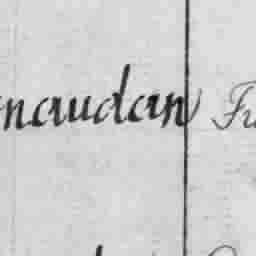 naudan Fu